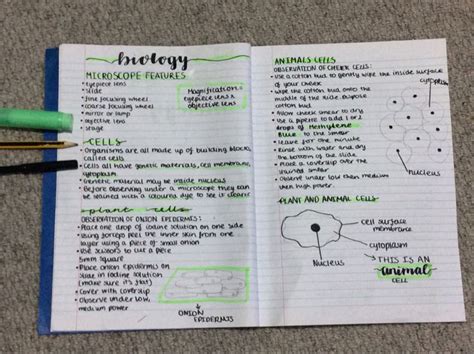 biology
MICROSCOPE FEATURES
• eyepiece lens
• slide
• fine focusing wheel
• coarse focusing wheel
• mirror or lamp
• objective lens
• stage
Magnification =
eyepiece lens x
objective lens
CELLS
• Organisms are all made up of building blocks
called cells
• Cells all have genetic materials, cell membrane,
cytoplasm
• Genetic material may be inside nucleus
• Before observing under a microscope they can
be stained with a coloured dye to see it clearer
plant cells
OBSERVATION OF ONION EPIDERMIS:
• Place one drop of iodine solution on one side
• Using forceps peel the inner skin from one
layer using a piece of small onion
• Use scissors to cut a piece
5mm square
• Place onion epidermis on
slide in iodine solution
(make sure it's flat)
• Cover with coverslip
• Observe under low,
medium power
ONION
EPIDERMIS
ANIMALS CELLS
OBSERVATION OF CHEEK CELLS:
• Use a cotton bud to gently wipe the inside surface
of your cheek
• Wipe the cotton bud onto the
middle of the slide. Dispose
cotton bud.
• Leave smear to dry
• Use a pipette to add 1 or 2
drops of Methylene
Blue to the smear
• Leave for one minute
• Rinse with water and dry
the bottom of the slide
• Place a coverslip over the
stained smear
• Observe under low then medium
then high power.
cytoplasm
nucleus
PLANT AND ANIMAL CELLS
cell surface
membrane
cytoplasm
Nucleus
THIS IS AN
animal
CELL